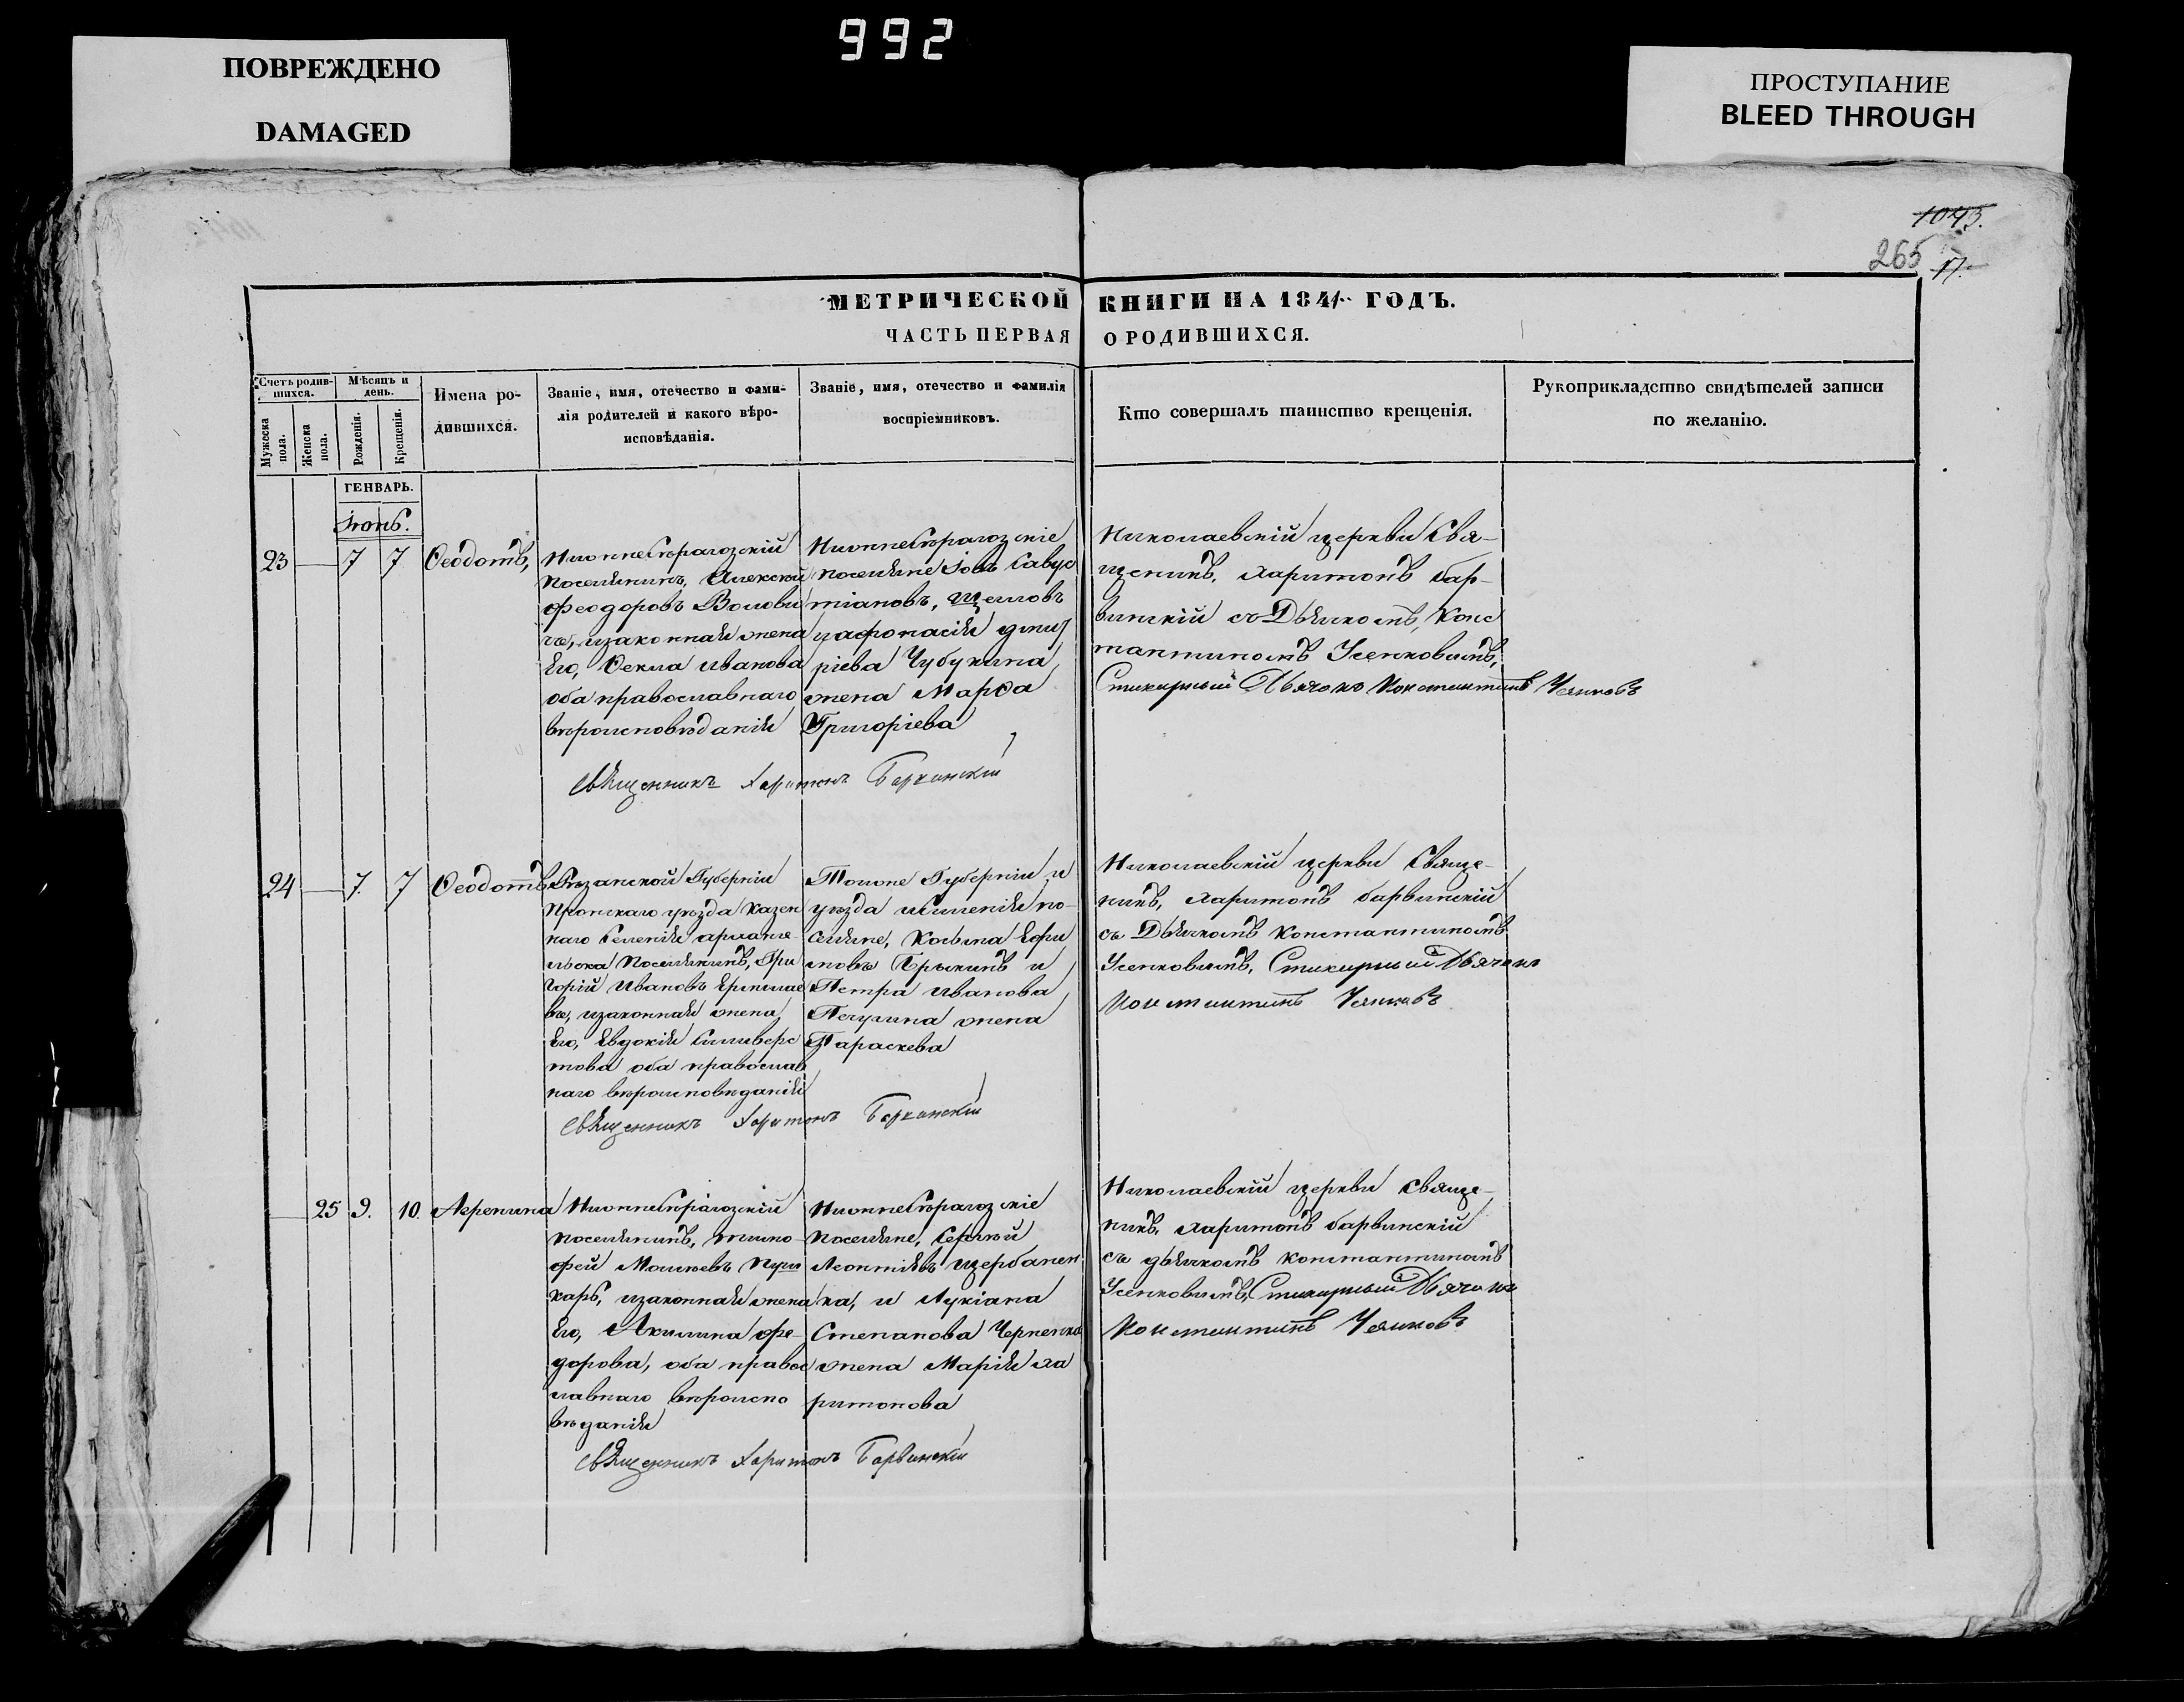 992
ПОВРЕЖДЕНО
DAMAGED
ПРОСТУПАНИЕ
BLEED THROUGH
1043.
265 17.
МЕТРИЧЕСКОЙ КНИГИ НА 1841 ГОДЪ.
ЧАСТЬ ПЕРВАЯ О РОДИВШИХСЯ.
Счетъ родив-
шихся.
Мужеска
пола.
Женска
пола.
Мѣсяцъ и
день.
Рожденія.
Крещенія.
Имена ро-
дившихся.
Званіе, имя, отечество и фами-
лія родителей и какого вѣро-
исповѣданія.
Званіе, имя, отечество и фамилія
воспріемниковъ.
Кто совершалъ таинство крещенія.
Рукоприкладство свидѣтелей записи
по желанію.
ГЕНВАРЬ.
Іюнь.
23
7 7
Ѳеодотъ,
Нижнесѣрагозскій
поселянинъ, Алексей
Феодоровъ Волови
чь, изаконная жена
Его, Ѳекла иванова
оба православнаго
вѣроисповѣданія
Нижнесѣрагозскіе
поселяне Іовъ Савус
тіановъ,
иафонасія дмит
ріева Чубукина
жена Марѳа
Григоріева
Николаевскій церкви Свя-
щеникъ, харитонъ бар-
винскій съ Дьячкомъ, Конс
тантиномъ Усенковымъ,
Стихарный Дьячокъ Константинъ
Священникъ Харитонъ Барвинскій
24
7. 7
Ѳеодотъ
Рязанской Губерніи
Пронскаго уѣзда Казен
наго Селенія
поселянинъ, Гри
горій Ивановъ
въ, изаконная жена
Его, Евдокія Силиверс
това оба православ
наго вѣроисповѣданія
Тогоже Губерніи и
уѣзда иселенія по-
селяне, Косьма Ефи
мовъ и
Петра иванова
жена
Параскева
Николаевскій церкви Свяще-
никъ, харитонъ барвинскій
съ Дьячкомъ Константиномъ
Усенковымъ, Стихарный Дьячокъ
Константинъ
Священникъ Харитонъ Барвинскій
25 9. 10.
Агрепина
Нижнесѣрагозскій
поселянинъ, тимо-
фей Моисеевъ Пуш
карь, изаконная жена
Его, Акилина фе-
дорова, оба правос
лавнаго вѣроиспо
вѣданія
Нижнесѣрагозскіе
поселяне, Сергѣй
Леонтіевъ щербанен
ка, и Лукіана
Степанова Черненка
жена Марія ха
ритонова
Николаевскій церкви Свяще-
никъ, харитонъ барвинскій
съ дьячкомъ константиномъ
Усенковымъ, Стихарный Дьячокъ
Константинъ
Священникъ Харитонъ Барвинскій